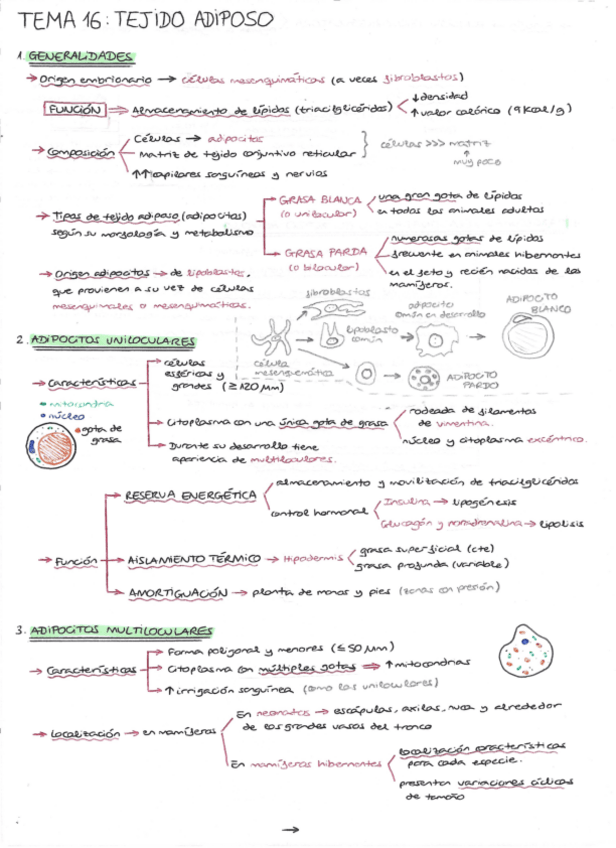 TEMA 16: TEJIDO ADIPOSO
1. GENERALIDADES
→ Origen embrionario → células mesenquimáticas (a veces fibroblastos)
FUNCIÓN ⇒ Almacenamiento de lípidos (triacilglicéridos)
↓densidad
↑valor calórico (9 Kcal/g)
→ Composición
Células → adipocitos
Matriz de tejido conjuntivo reticular
↑↑capilares sanguíneos y nervios
células >>> matriz
↑
muy poco
→ Tipos de tejido adiposo (adipocitos)
según su morfología y metabolismo
GRASA BLANCA
(o unilocular)
una gran gota de lípidos
en todos los animales adultos
GRASA PARDA
(o bilocular)
numerosas gotas de lípidos
frecuente en animales hibernantes
en el feto y recién nacidos de los
mamíferos.
→ Origen adipocitos → de lipoblastos,
que provienen a su vez de células
mesenquimales o mesenquimáticas.
fibroblastos
lipoblasto
común
adipocito
común en desarrollo
ADIPOCITO
BLANCO
célula
mesenquemática
ADIPOCITO
PARDO
2. ADIPOCITOS UNILOCULARES
→ Características
células
esféricas y
grandes (≥120 µm)
mitocondria
núcleo
gota de
grasa
Citoplasma con una única gota de grasa
rodeada de filamentos
de vimentina.
núcleo y citoplasma excéntrico.
Durante su desarrollo tiene
apariencia de multiloculares.
→ Función
RESERVA ENERGÉTICA
almacenamiento y movilización de triacilglicéridos
control hormonal
Insulina → lipogénesis
Glucagón y noradrenalina → lipolisis
AISLAMIENTO TÉRMICO → Hipodermis
grasa superficial (cte)
grasa profunda (variable)
AMORTIGUACIÓN → planta de manos y pies (zonas con presión)
3. ADIPOCITOS MULTILOCULARES
→ Características
Forma poligonal y menores (≤50 µm)
Citoplasma con múltiples gotas ⇒ ↑mitocondrias
↑ irrigación sanguínea (como los uniloculares)
→ Localización → en mamíferos
En neonatos → escápulas, axilas, nuca y alrededor
de los grandes vasos del tronco
En mamíferos hibernantes
localización características
para cada especie.
presentan variaciones cíclicas
de tamaño
→